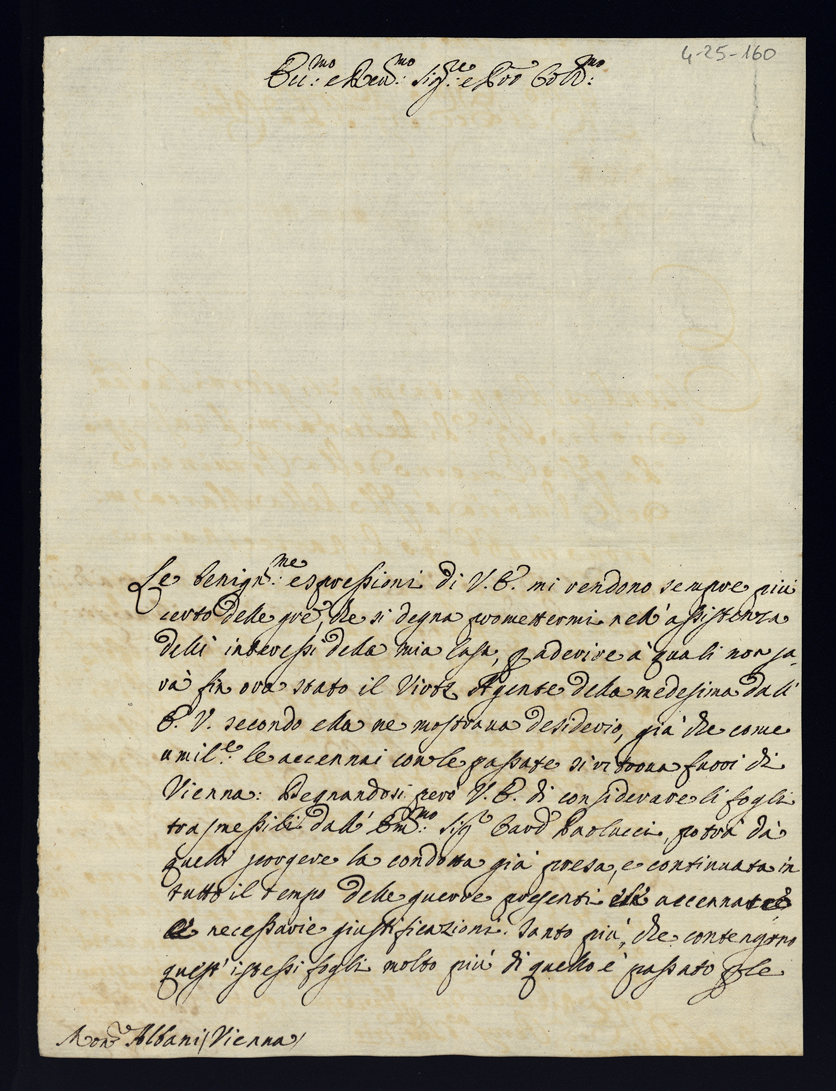 4-25-160
Ecc:mo e Rev:mo Sig:re e Pro Col:mo
Le benig:me espressioni di V. E. mi rendono sempre più
certo delle gre, che si degna promettermi nell' assistenza
delli interessi della mia Casa, p aderire à quali non sa-
rà fin ora stato il Agente della medesima dall'
E. V. secondo ella ne mostraua desiderio, già che come
umil:e le accennai con le passate si ritroua fuori di
Vienna: Degnandosi però V. E. di considerare li fogli
trasmessili dall' Em:mo Sig Card Paolucci, potrà da
quelli scorgere la condotta già presa, e continuata in
tutto il tempo delle guerre presenti accennate
necessarie giustificazioni. Tanto più, che contengono
quest' istessi fogli molto più di quello è passato p le
Mon Albani (Vienna)